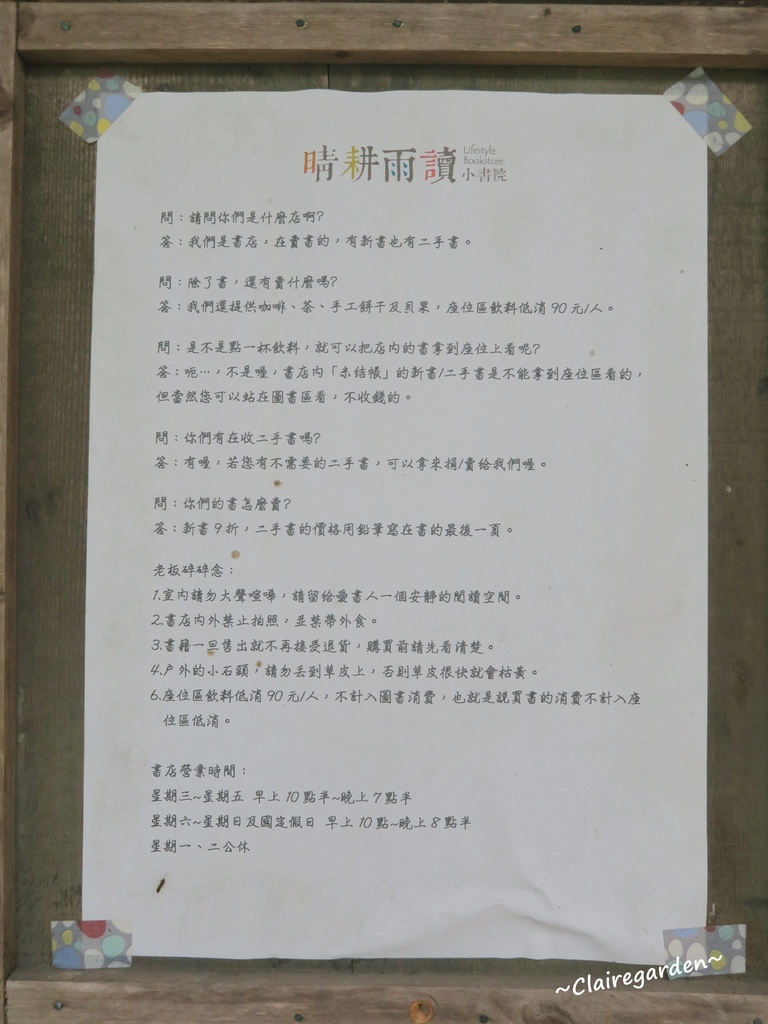 晴耕雨讀 Lifestyle
Bookstore
小書院
問：請問你們是什麼店啊?
答：我們是書店，在賣書的，有新書也有二手書。
問：除了書，還有賣什麼嗎?
答：我們還提供咖啡、茶、手工餅干及貝果，座位區飲料低消 90 元/人。
問：是不是點一杯飲料，就可以把店內的書拿到座位上看呢?
答：呃…，不是喔，書店內「未結帳」的新書/二手書是不能拿到座位區看的，
但當然您可以站在圖書區看，不收錢的。
問：你們有在收二手書嗎?
答：有喔，若您有不需要的二手書，可以拿來捐/賣給我們喔。
問：你們的書怎麼賣?
答：新書 9 折，二手書的價格用鉛筆寫在書的最後一頁。
老板碎碎念：
1.室內請勿大聲喧嘩，請留給愛書人一個安靜的閱讀空間。
2.書店內外禁止拍照，並禁帶外食。
3.書籍一旦售出就不再接受退貨，購買前請先看清楚。
4.戶外的小石頭，請勿丟到草皮上，否則草皮很快就會枯黃。
6.座位區飲料低消 90 元/人，不計入圖書消費，也就是說買書的消費不計入座
位區低消。
書店營業時間：
星期三~星期五 早上 10 點半~晚上 7 點半
星期六~星期日及國定假日 早上 10 點~晚上 8 點半
星期一、二公休
~Clairegarden~